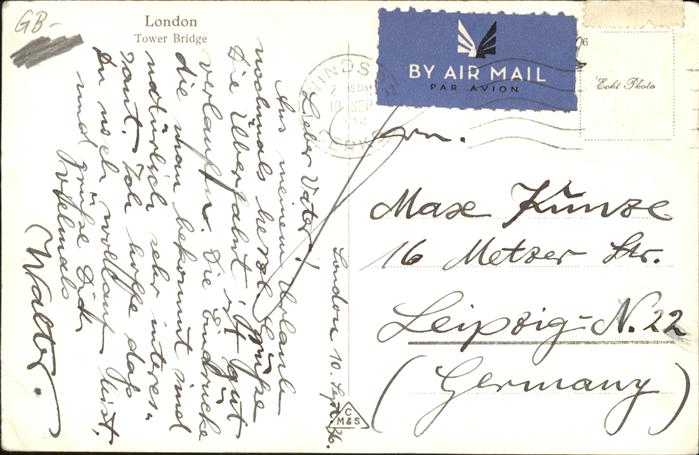 GB-
London
Tower Bridge
London 10. Sept. 36.
Lieber Vater!
Aus meinem Urlaub
nochmals herzl. Grüße
Die Überfahrt ist gut
verlaufen. Die Eindrücke
die man bekommt sind
natürlich sehr interes-
sant. Ich hoffe daß
Du noch wohlauf bist,
und grüße Dich
vielmals
Walter.
BY AIR MAIL
PAR AVION
WINDSOR
10 SEP
Echt Photo
Hrn.
Max Kunze
16 Metzer Str.
Leipzig-N.22
(Germany)
C
M&S